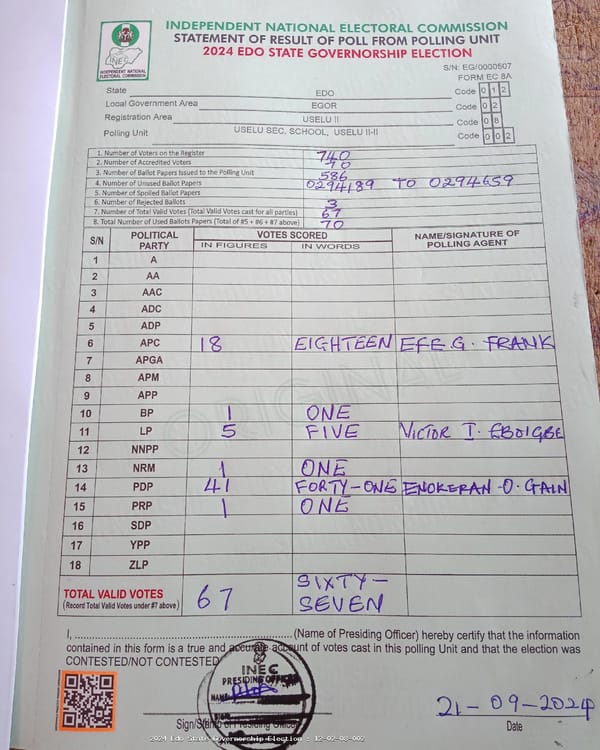 INDEPENDENT NATIONAL ELECTORAL COMMISSION
STATEMENT OF RESULT OF POLL FROM POLLING UNIT
2024 EDO STATE GOVERNORSHIP ELECTION
INEC
INDEPENDENT NATIONAL
ELECTORAL COMMISSION
S/N: EG/0000507
FORM EC 8A
State EDO Code 0 1 2
Local Government Area EGOR Code 0 2
Registration Area USELU II Code 0 8
Polling Unit USELU SEC. SCHOOL, USELU II-II Code 0 0 2
1. Number of Voters on the Register 740
2. Number of Accredited Voters 70
3. Number of Ballot Papers Issued to the Polling Unit 586
4. Number of Unused Ballot Papers 0294189 TO 0294659
5. Number of Spoiled Ballot Papers
6. Number of Rejected Ballots 3
7. Number of Total Valid Votes (Total Valid Votes cast for all parties) 67
8. Total Number of Used Ballots Papers (Total of #5 + #6 + #7 above) 70
S/N POLITICAL PARTY VOTES SCORED NAME/SIGNATURE OF POLLING AGENT
IN FIGURES IN WORDS
1 A
2 AA
3 AAC
4 ADC
5 ADP
6 APC 18 EIGHTEEN EFE G. FRANK
7 APGA
8 APM
9 APP
10 BP 1 ONE
11 LP 5 FIVE VICTOR I. EBOIGBE
12 NNPP
13 NRM 1 ONE
14 PDP 41 FORTY-ONE ENOKERAN-O-GAIN
15 PRP 1 ONE
16 SDP
17 YPP
18 ZLP
ORIGINAL
TOTAL VALID VOTES 67 SIXTY-SEVEN
(Record Total Valid Votes under #7 above)
I, (Name of Presiding Officer) hereby certify that the information
contained in this form is a true and accurate account of votes cast in this polling Unit and that the election was
CONTESTED/NOT CONTESTED
INEC
PRESIDING OFFICER
NAME
21-09-2024
Sign/Stamp of Presiding Officer Date
2024 Edo State Governorship Election : 12-02-08-002